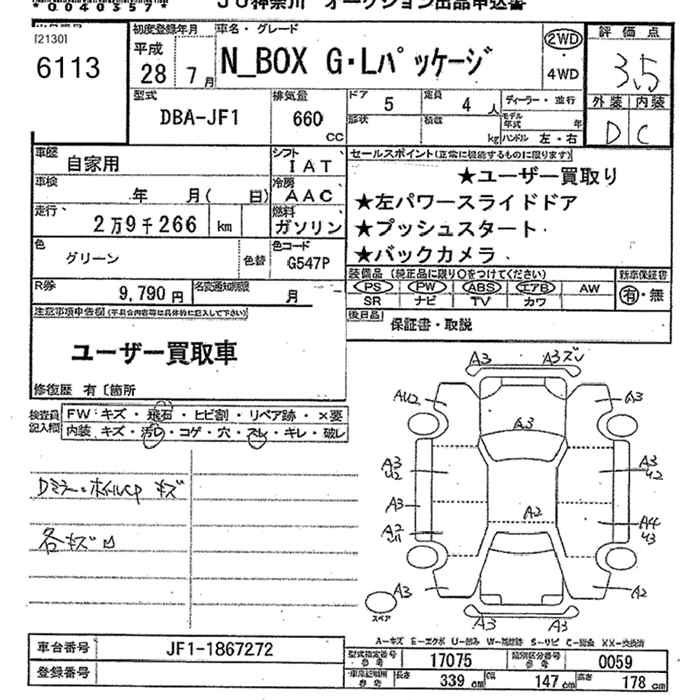 00040357
JU神奈川 オークション出品申込書
[2130]
6113
初度登録年月
平成
28年 7月
車名・グレード
N_BOX G・Lパッケージ
2WD
・
4WD
評価点
3.5
外装 内装
D C
型式
DBA-JF1
排気量
660
CC
ドア
5
定員
4 人
形状
積載
kg
ディーラー・並行
モデル年式 年
ハンドル 左・右
車歴
自家用
シフト
IAT
車検
年 月( 日)
冷房
AAC
走行
2万9千266 km
燃料
ガソリン
色
グリーン
色替
色コード
G547P
セールスポイント(正常に機能するものに限ります)
★ユーザー買取り
★左パワースライドドア
★プッシュスタート
★バックカメラ
R券
9,790円
名変通知期限
月
装備品 (純正品に限り○をつけてください)
PS PW ABS エアB AW
SR ナビ TV カワ
新車保証書
有・無
後日品
保証書・取説
注意事項申告欄(不具合内容等は具体的に記入して下さい)
ユーザー買取車
修復歴 有〔箇所
検査員
記入欄
FW キズ・飛石・ヒビ割・リペア跡・×要
内装 キズ・汚れ・コゲ・穴・スレ・キレ・破レ
Dミラー・ホイルCP キズ
A3 A3ズレ
AU2 A3
A3
A3 U2 A3 U2
A3 A2
A2 U1 A4 U3
A3 A2
スペア
A3 A3
車台番号
JF1-1867272
登録番号
型式指定番号
参考
17075
類別区分番号
参考
0059
長さ
339 cm
幅
147 cm
高さ
178 cm